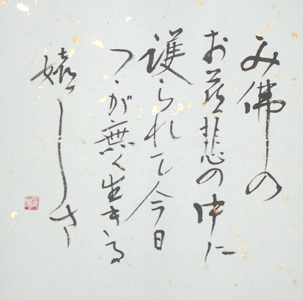 み佛の
お慈悲の中に
護られて今日
つゝが無く生きる
嬉しさ